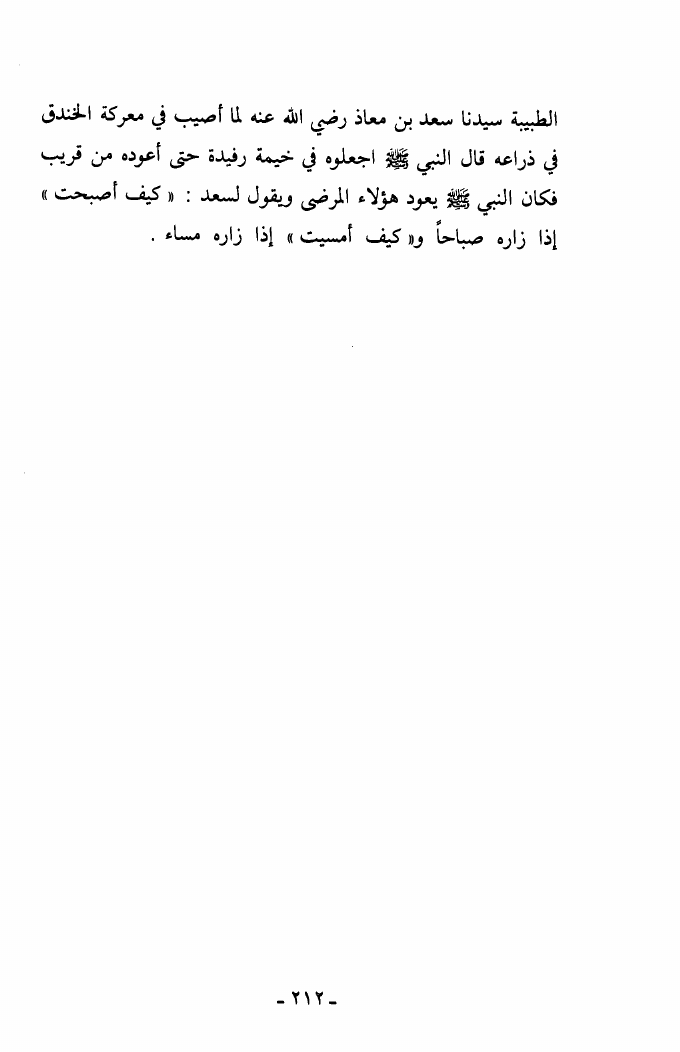 الطبيبة سيدنا سعد بن معاذ رضي الله عنه لما أصيب في معركة الخندق
في ذراعه قال النبي ﷺ اجعلوه في خيمة رفيدة حتى أعوده من قريب
فكان النبي ﷺ يعود هؤلاء المرضى ويقول لسعد : « كيف أصبحت »
إذا زاره صباحاً و« كيف أمسيت » إذا زاره مساء .
- ٢١٢ -